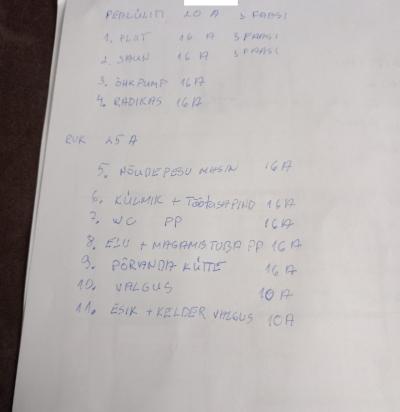 PEALÜLITI 20 A 3 FAASI
1. PLIIT 16 A 3 FAASI
2. SAUN 16 A 3 FAASI
3. ÕHKPUMP 16A
4. RADIKAS 16A
RVK 25 A
5. NÕUDEPESU MASIN 16A
6. KÜLMIK + TÖÖTASAPIND 16A
7. WC PP 16A
8. ESU + MAGAMISTUBA PP 16A
9. PÕRANDA KÜTTE 16A
10. VALGUS 10A
11. ESIK + KELDER VALGUS 10A